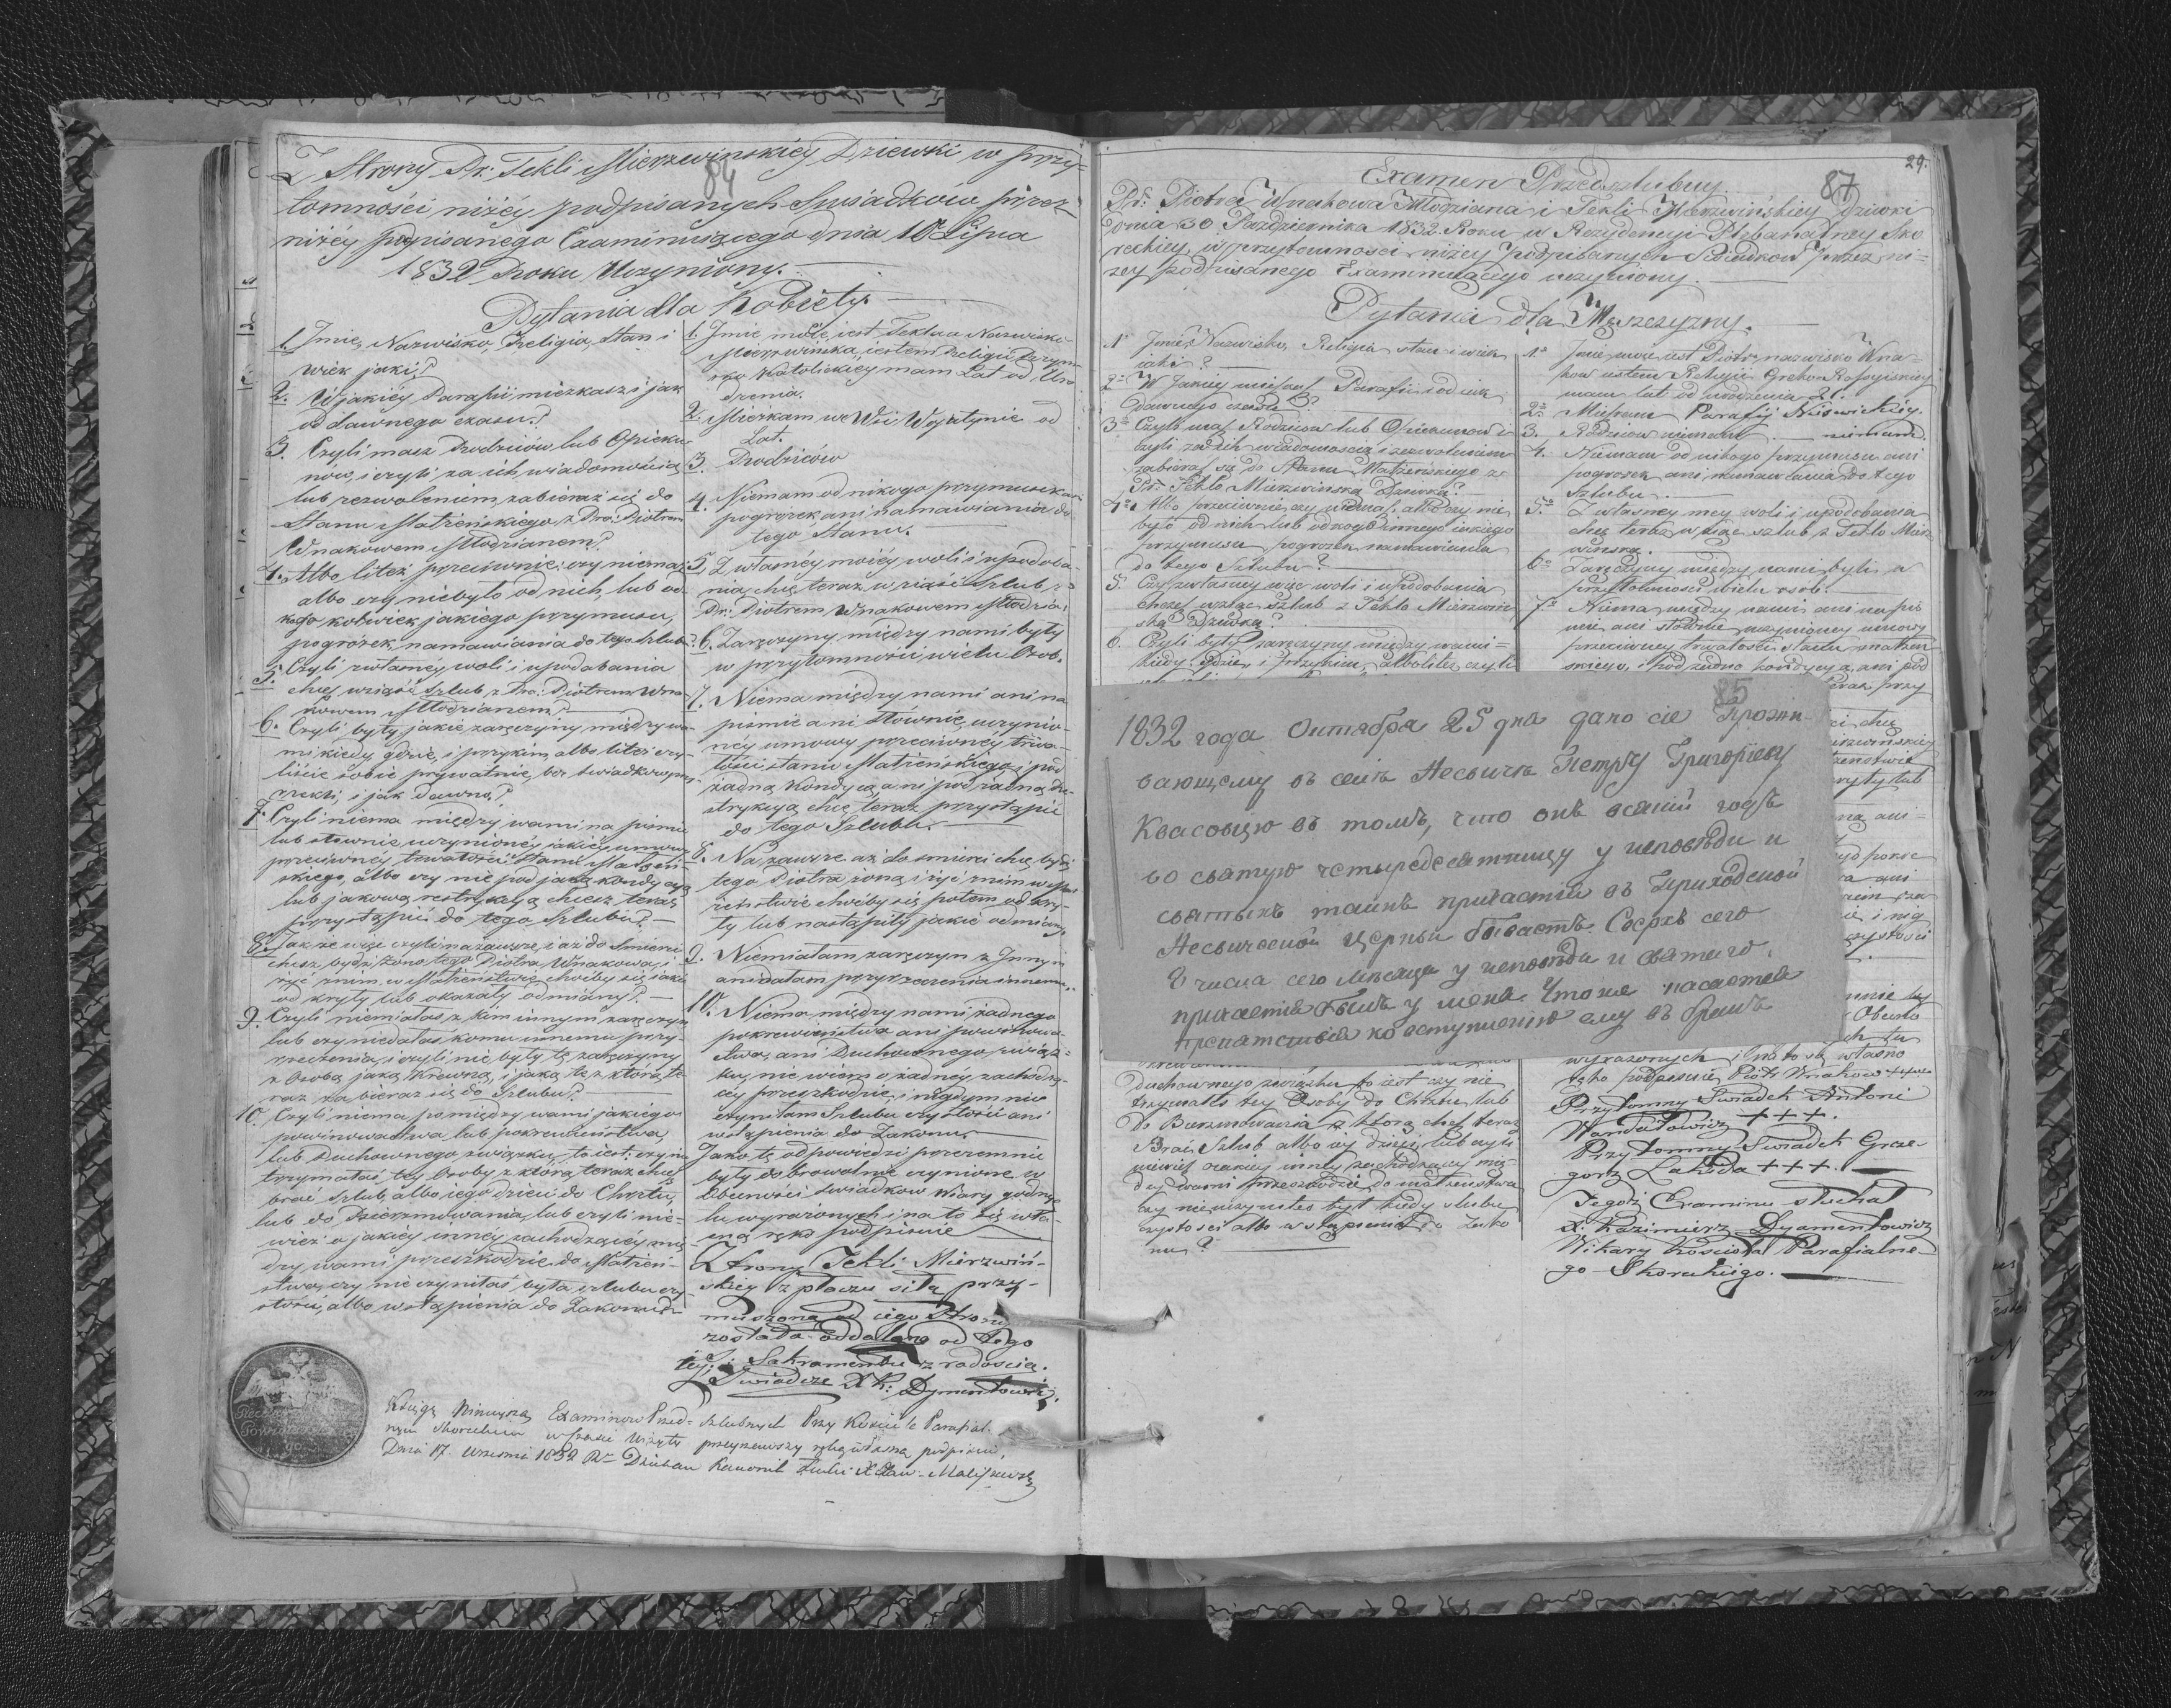 84
Z Strony Pr: Tekli Mierzwinskiey Dziewki w przy-
tomności niżéy podpisanych Swiadków przez
niżéy popisanego Examinuiącego dnia 10 Lipca
1832 Roku Uczyniony.
Pytania dla Kobiéty.
1. Jmie, Nazwisko, Religia, Stan i
wiek jaki?
2. W jakiéy Parafii mieszkasz i jak
od dawnego czasu?
3. Czyli masz Rodziców lub Opieku-
nów, i czyli za ich wiadomością
lub zezwoleniem, zabierasz się do
Stanu Małżeńskiego z Pra: Piotrem
Wnakowem Młodzianem?
4. Albo li też przeciwnie, czy niemasz
albo czy niebyło od nich, lub od
kogo kolwiek jakiego przymusu,
pogrózek, namawiania do tego Szlubu?
5. Czyli z własnéy woli i upodobania
chcesz wziąść Szlub, z Pra: Piotrem Wna-
kowem Młodzianem?
6. Czyli były jakie zaręczyny między wa-
mi kiedy, gdzie, i przy kim, albo li też czy-
liście sobie prywatnie, bez świadków przy-
rzekli, i jak dawno?
7. Czyli niema między wami na piśmie
lub słownie uczynionéy jakiéy umowy
przeciwnéy trwałości Stanu Małżeń-
skiego, albo czy nie pod jaką kondycyą
lub jakową restrykcyą chcesz teraz
przystąpić do tego Szlubu?
8. Jak że więc czyli na zawsze, i aż do Smierci
chcesz bydź Zoną tego Piotra Wnakowa, i
żyć z nim w Małżeństwie, choćby się jakie
od kryły lub okazały odmiany?
9. Czyli niemiałaś z kim innym zaręczyn
lub czy niedałaś komu innemu przy-
rzeczenia, i czyli nie były te zaręczyny
z Osobą jaką Krewną, i jaką tą z którą te-
raz zabierasz się do Szlubu?
10. Czyli niema pomiędzy wami jakiego
powinowactwa, lub pokrewieństwa,
lub Duchownego związku, to iest: czy nie
trzymałaś téy Osoby z którą teraz chcesz
brać Szlub, albo iego dzieci do Chrztu,
lub do Bierzmowania, lub czyli nie-
wiesz o jakiéy innéy zachodzącéy mię-
dzy wami przeszkodzie do Małżeń-
stwa, czy nie czyniłaś była szlubu czy-
stości, albo wstąpienia do Zakonu?
1. Jmie moie iest Tekla a Nazwisko
Mierzwinska, iestem Religii Rzym-
sko Katolickiey mam Lat od Uro-
dzenia.
2. Mieszkam we Wsi Woyatynie od
Lat.
3. Rodziców
4. Niemam od nikogo przymusu ani
pogrózek, ani namawiania do
tego Stanu.
5. Z własnéy moiéy woli i upodoba-
nia, chcę teraz wziąść Szlub z
Pr: Piotrem Wnakowem Młodzia:
6. Zaręczyny między nami były
w przytomności wielu Osob.
7. Niema między nami ani na
piśmie ani słównie uczynio-
néy umowy przeciwnéy trwa-
łości stanu Małżeńskiego, i pod
żadną Kondycą, ani pod żadną Re-
strykcyą chcę teraz przystąpić
do tego Szlubu.
8. Na zawsze aż do smierci chcę bydź
tego Piotra żoną i żyć z nim w Mał-
żeństwie choćby się potem odkry-
ły lub nastąpiły jakie odmiany
9. Niemiałam zaręczyn z Jnnym
ani dałam przyrzeczenia innemu.
10. Niema między nami żadnego
pokrewieństwa ani powinowa-
ctwa, ani Duchownego związ-
ku, nie wiem o żadnéy zachodzą-
céy przeszkodzie, i nigdym nie
czyniłam Szlubu czystości ani
wstąpienia do Zakonu.
Jako te odpowiedzi przezemnie
były dobrowolnie czynione w
Obecności świadków Wiary godnych
tu wyrażonych, i na to się wła-
sną ręką podpisuię
Z strony Tekli Mierzwiń-
skiey z płaczu siłą przy-
muszona od iego Strony
została oddalona od tego
Sakramentu z radoscią.
Swiadcze X K: Dymentowicz.
Księgę Ninieyszą Examinow Przed-szlubnych Przy Kościele Parafial-
nym Skoreckim w czasie Wizyty przeyrzawszy ręką własną podpisuię
Dnia 17. Wrzesnia 1832 Ru Dziekan Kanonik
29.
87
Examen Przedszlubny
Pr: Piotra Wnakowa Młodziana i Tekli Mierzwińskiey Dziwki
Dnia 30 Października 1832 Roku w Rezydencyi Plebanalney Sko
reckiey, w przytomności niżey Podpisanych Swiadkow Przez ni-
żey podpisanego Examinuiącego uczyniony.
Pytania dla Męszczyzny.
1o Jmie, Nazwisko, Religia stan i wiek
iaki?
2o W Jakiey mieszkasz Parafii i od iak
Dawnego czasu?
3o Czyli masz Rodzicow lub Opiekunow i
czyli za ich wiadomoscią i zezwoleniem
zabierasz się do Stanu Małżenskiego z
Pr: Teklo Mierzwinsko Dziewko?
4o Albo przeciwnie czy niemasz albo czy nie
było od nich lub od kogo innego iakiego
przymusu pogrozek namawiania
do tego Szlubu?
5. Czy z własney więc woli i upodobania
chcesz wziąć szlub z Teklo Mierzwin
sko Dziewko?
6. Czyli były zaręczyny między wami-
kiedy gdzie i przy kim, albo li też czyli
1o Jmie moie iest Piotr, nazwisko Wna-
kow iestem Religii Greko-Rossyiskiey
mam lat od urodzenia 21.
2o Mieszkam Parafij Nieswickiéy.
3. Rodzicow niemam — niemam.
4. Niemam od nikogo przymusu ani
pogrozek ani namawiania do tego
szlubu.
5o Z własney mey woli i upodobania
chcę teraz wziąc szlub z Teklo Mierz
winsko.
6o Zaręczyny między nami byli w
przytomności wielu osob.
7o Niema między nami ani na piś
mie ani słownie uczynioney umowy
przeciwney trwałości stanu małżen
skiego, i pod żadno kondycyą, ani pod
teraz przy
85
1832 года Октября 25 дня дано сіе прожи-
вающему въ селѣ Несвичѣ Петру Григоріеву
Квасовцю въ томъ, что онъ всякій годъ
во святую четыредесятницу у исповѣди и
святыхъ таинъ причастія въ Приходской
Несвичской церкви бываетъ. Сверхъ сего
числа сего мѣсяца у исповѣди и святаго
причастія былъ у меня. Что же касается
препятствія ко вступленію ему въ бракъ
duchownego związku to iest czy nie
trzymałes tey Osoby do Chrztu lub
do Bierzmowania z którą chcesz teraz
Brać Szlub albo iey dzieci, lub czyli
niewiesz o iakiey inney zachodzącey mię
dzy wami przeszkodzie do małżenstwa
czy nieuczyniłes był kiedy slubu
czystości albo wstąpienia do Zako
nu?
wyrażonych i na to się własno
ręko podpisuię Piotr Wnakow +++
Przytomny Swiadek Antoni
Wandałowicz +++.
Przytomny Swiadek Grze-
gorz Lakida +++.
Tegoż Examinu słuchał
X: Kazimierz Dyamentowicz
Wikary Koscioła Parafialne-
go Skoreckiego.